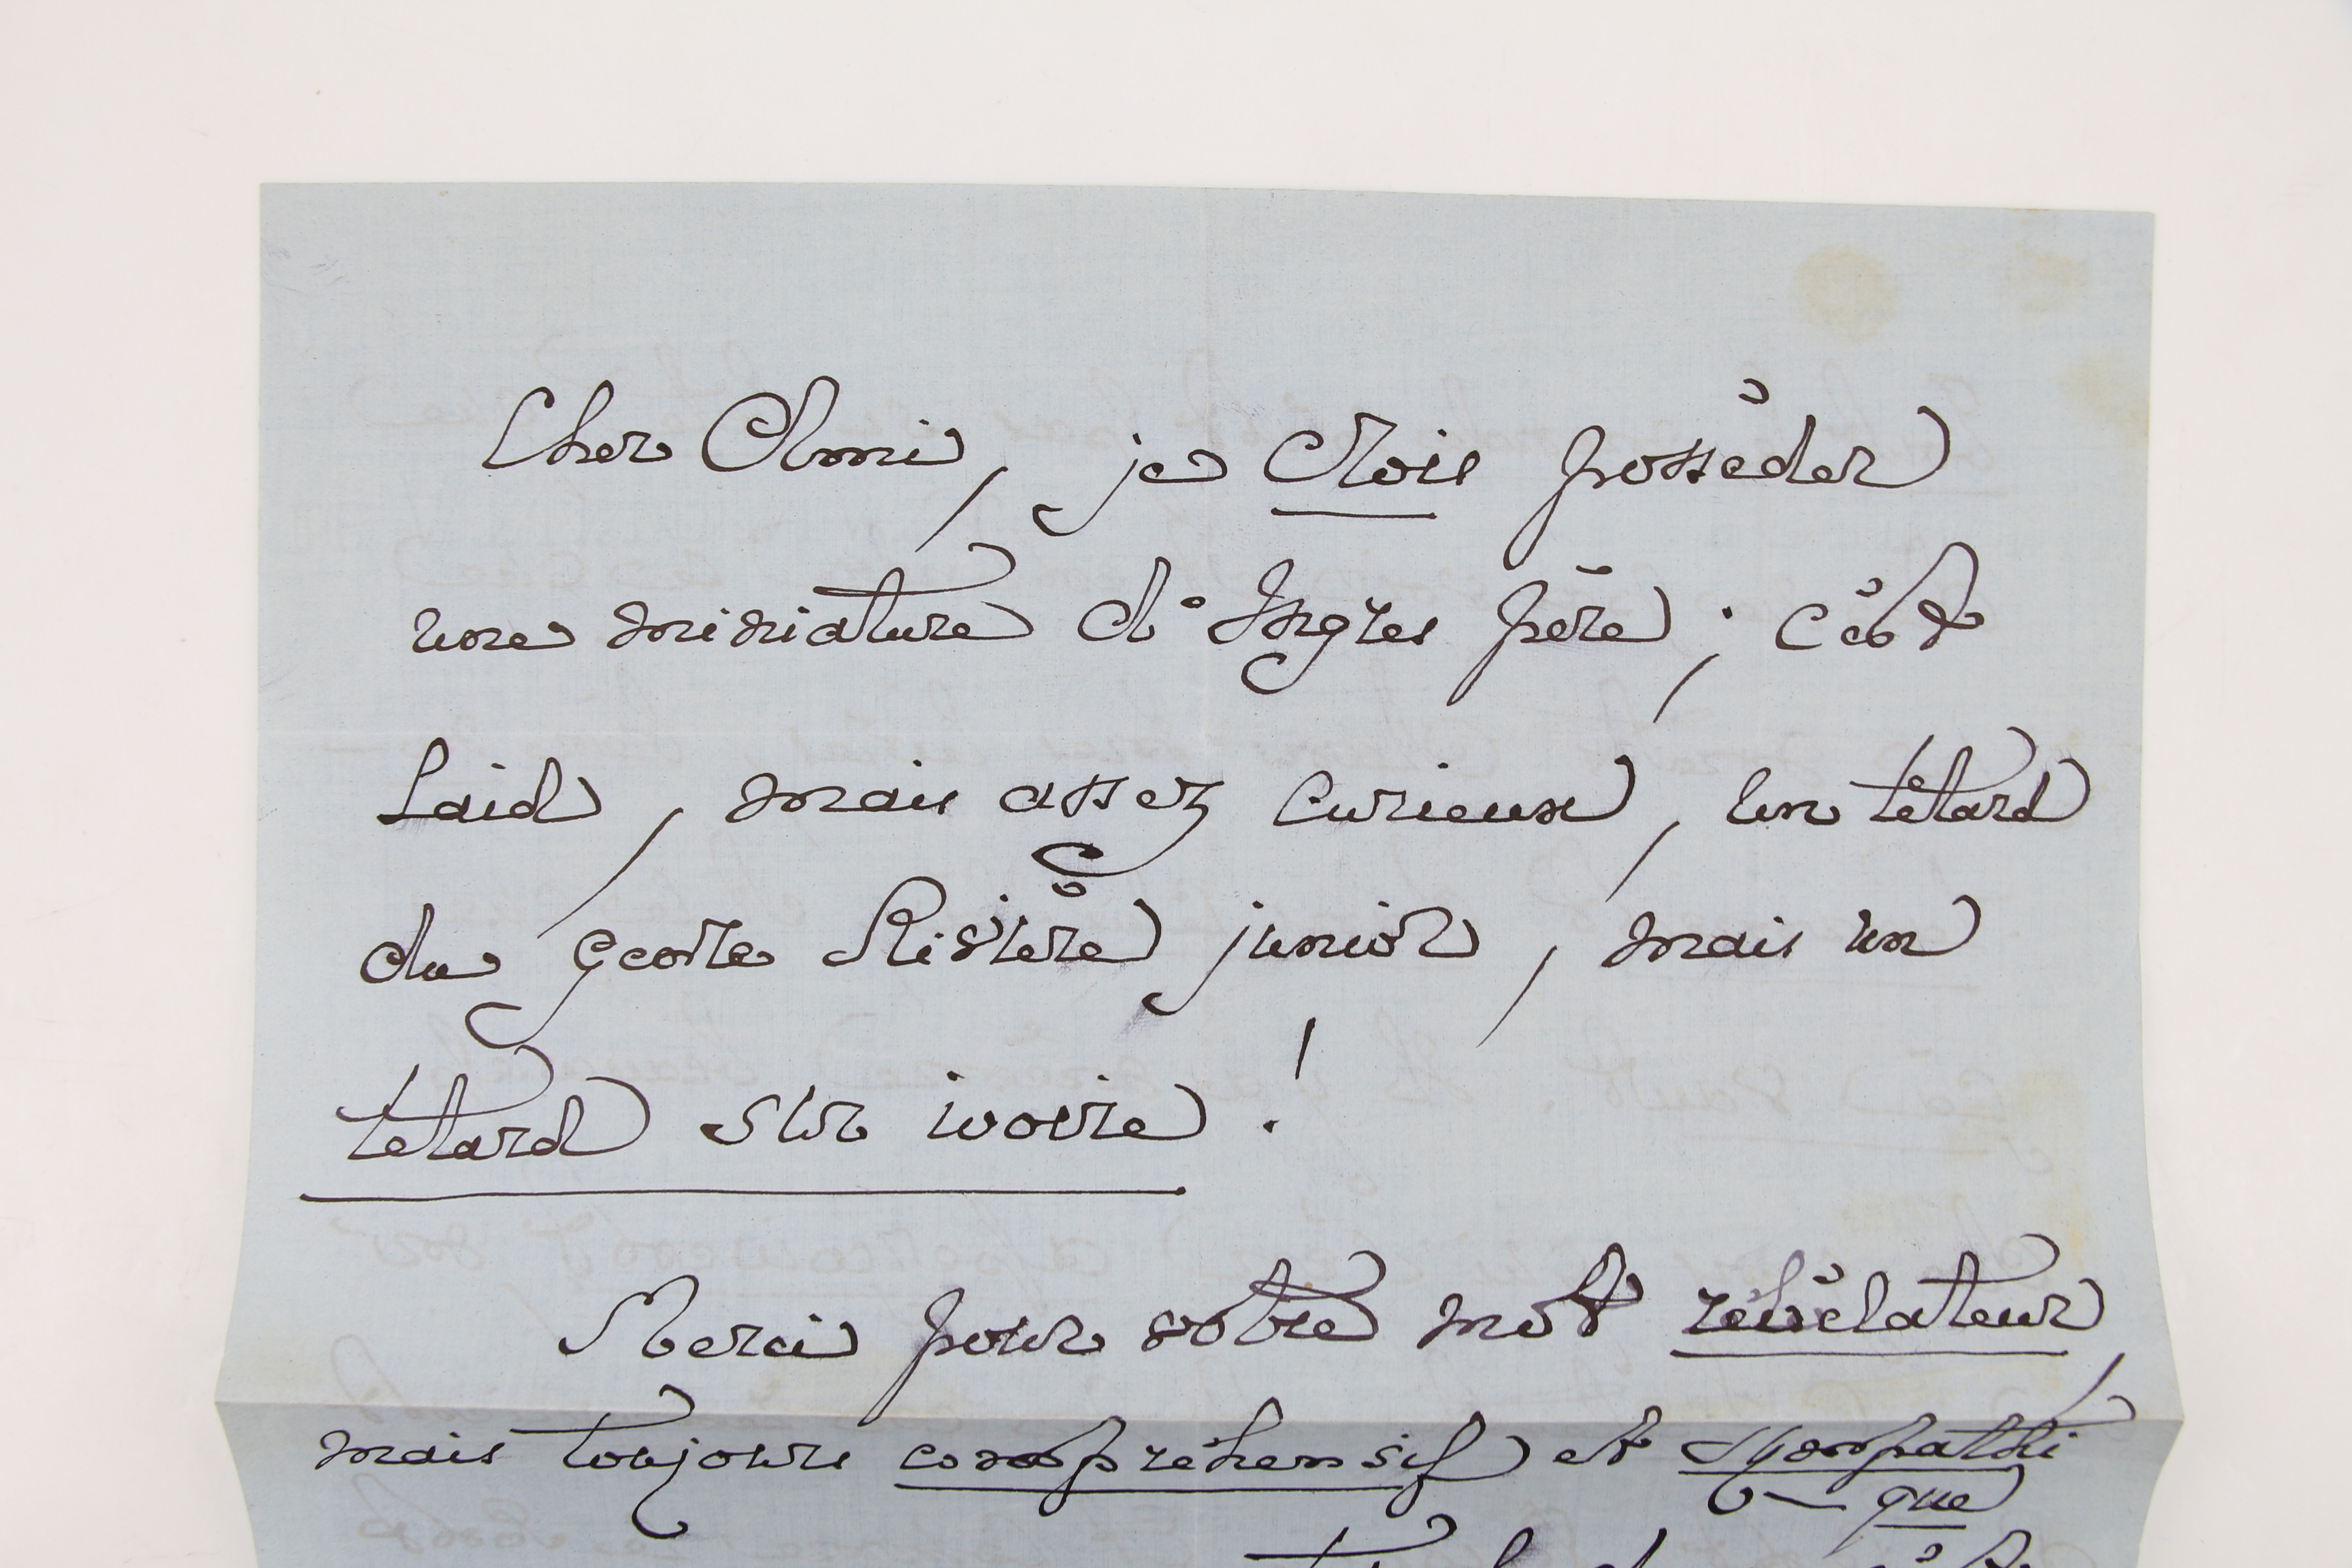 Cher Ami, je crois posséder
une miniature d'Ingres père ; c'est
laid, mais assez curieux, un têtard
du genre Rivière junior, mais un
têtard sur ivoire !
Merci pour votre mot révélateur,
mais toujours compréhensif et sympathi
que